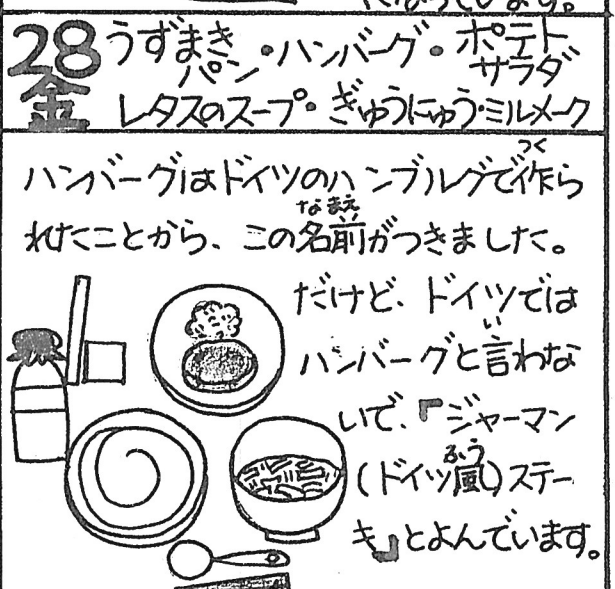 になっています。
28
金
うずまきパン・ハンバーグ・ポテトサラダ
レタスのスープ・ぎゅうにゅう・ミルメーク
ハンバーグはドイツのハンブルグで作(つく)ら
れたことから、この名前(なまえ)がつきました。
だけど、ドイツでは
ハンバーグと言(い)わな
いで、『ジャーマン
(ドイツ風(ふう))ステー
キ』とよんでいます。